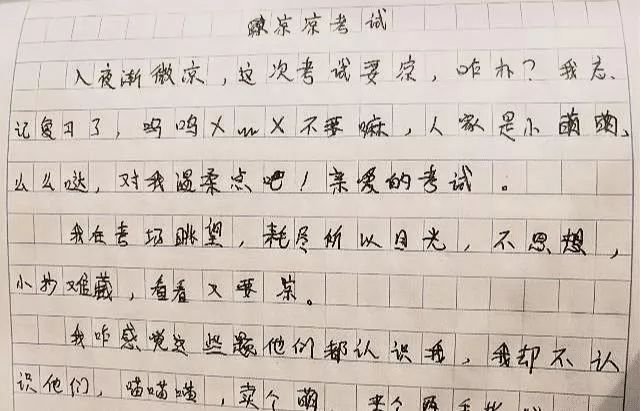 凉凉考试
入夜渐微凉,这次考试要凉,咋办?我忘
记复习了,呜呜X﹏X不要嘛,人家是小萌萌、
么么哒,对我温柔点吧!亲爱的考试。
我在考场眺望,耗尽所以目光,不思想,
小抄难藏,看看又要凉。
我咋感觉这些题他们都认识我,我却不认
识他们,喵喵喵,卖个萌,来个